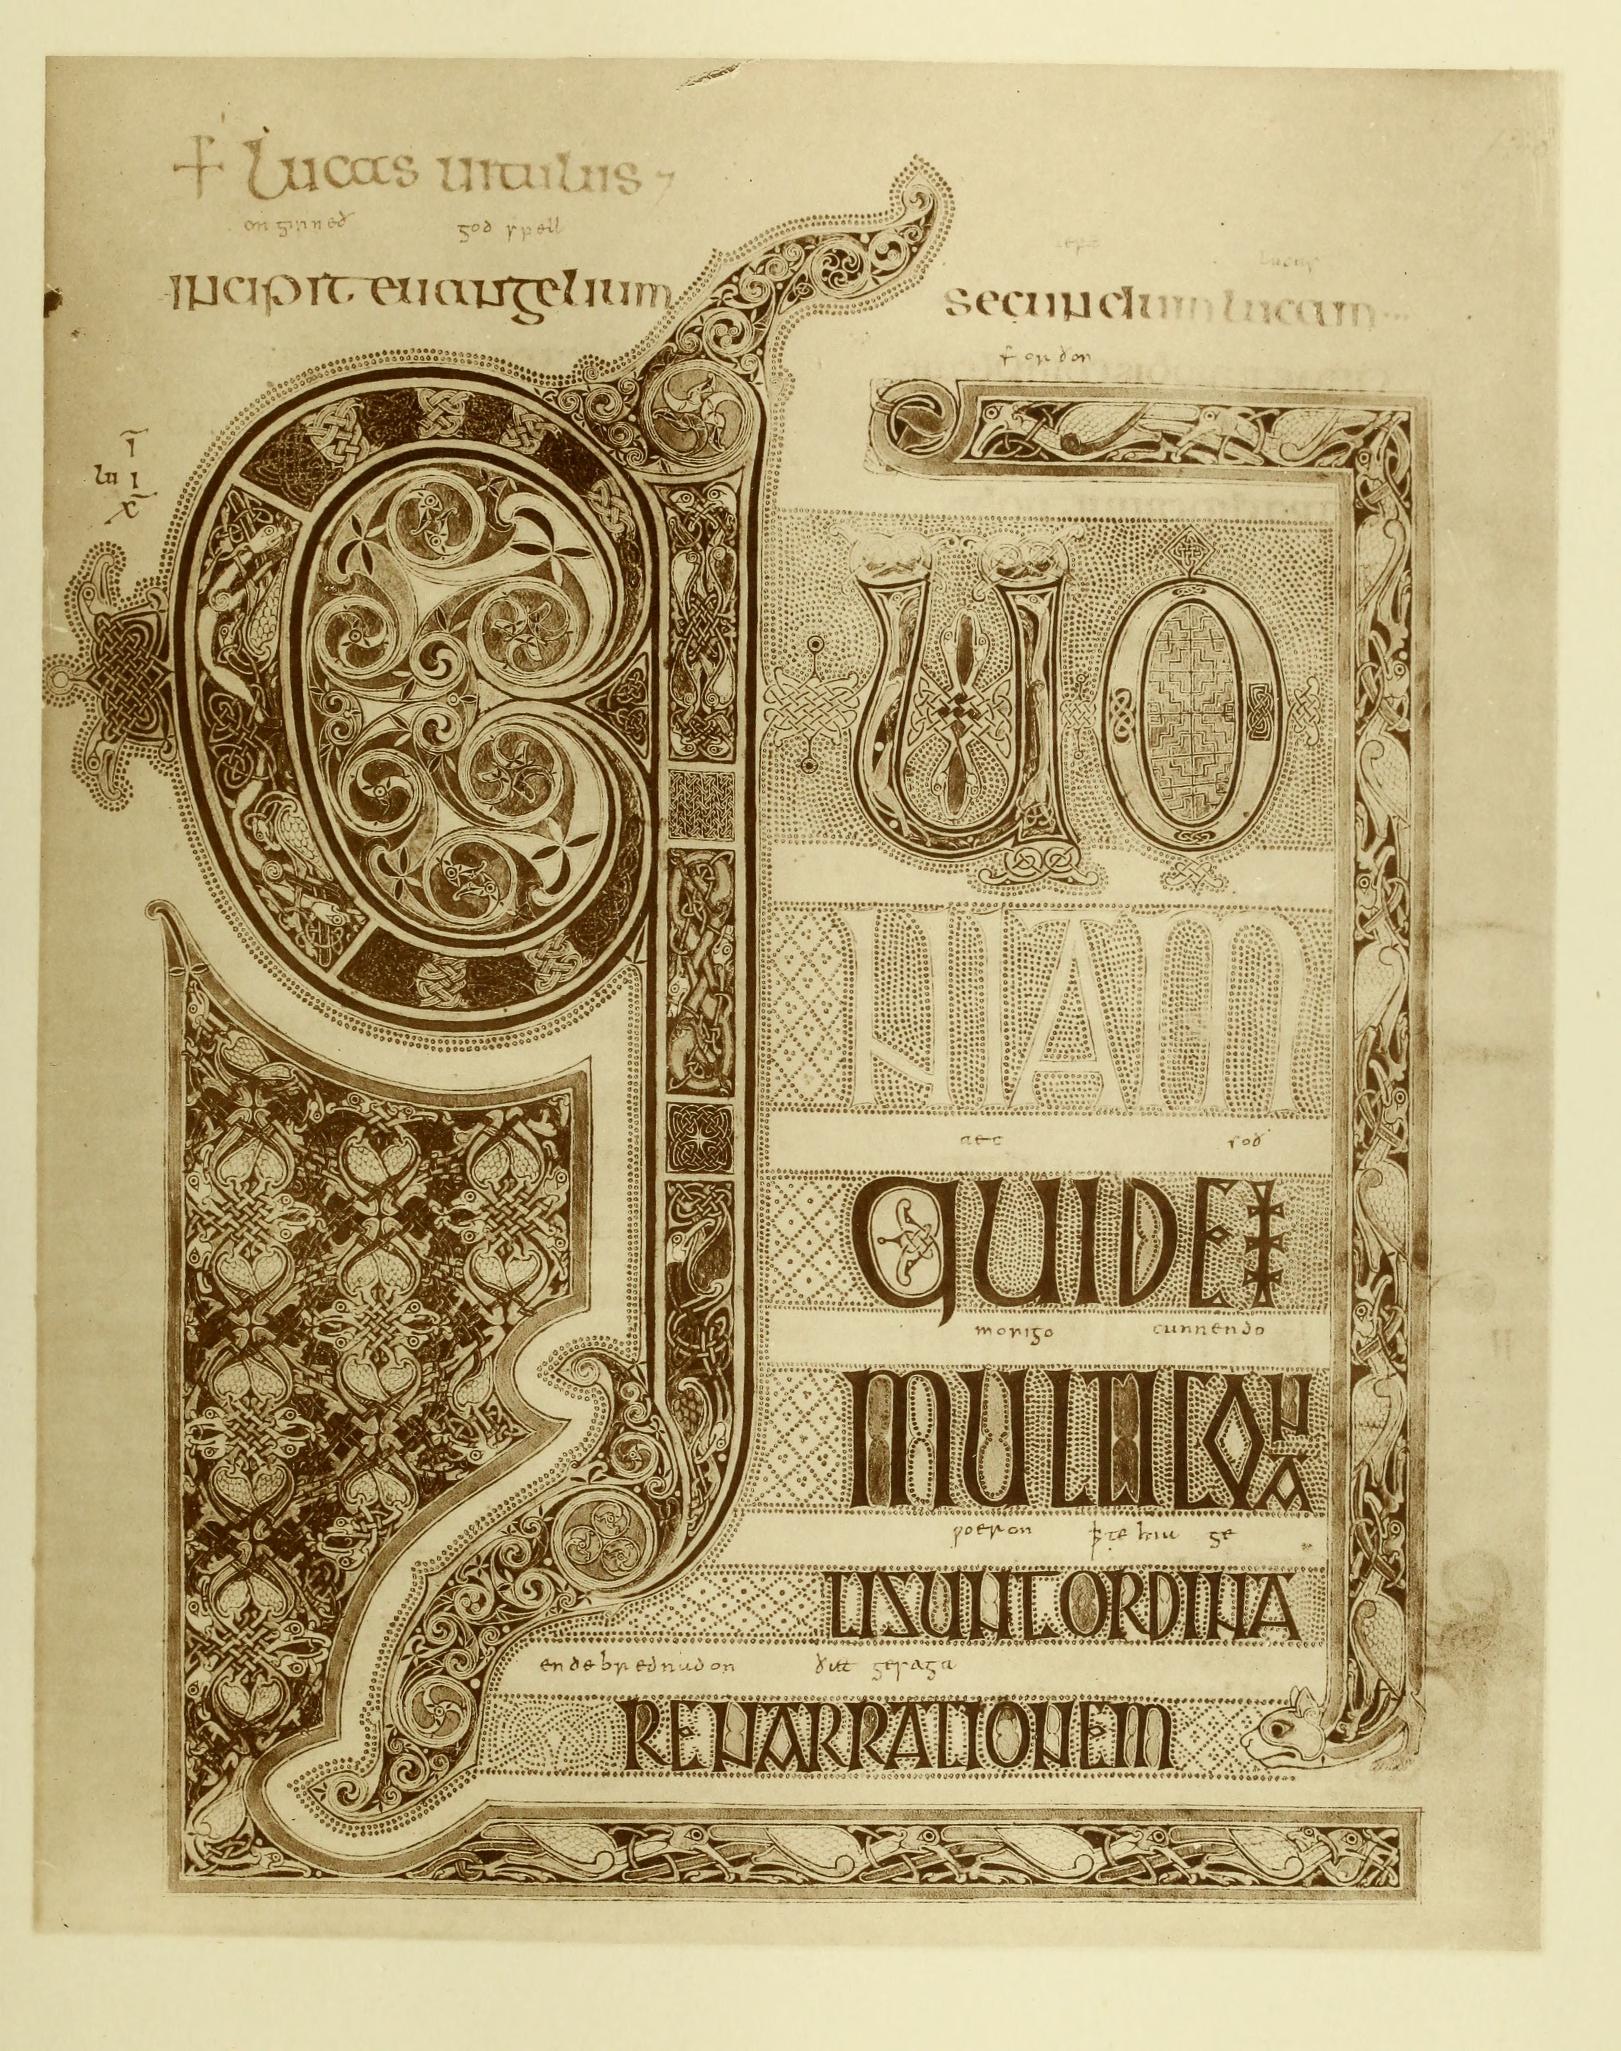 + Lucas uitulus
onginneð godspell
incipit euangelium secundum lucam
forðon
lu i i x
QUO
NIAM
aec soð
QUIDE
monigo cunnendo
MULTI CON A
poeron þte hiu ge
TI SUNT ORDINA
endebrednadon ðæt gesaga
RE NARRATIONEM